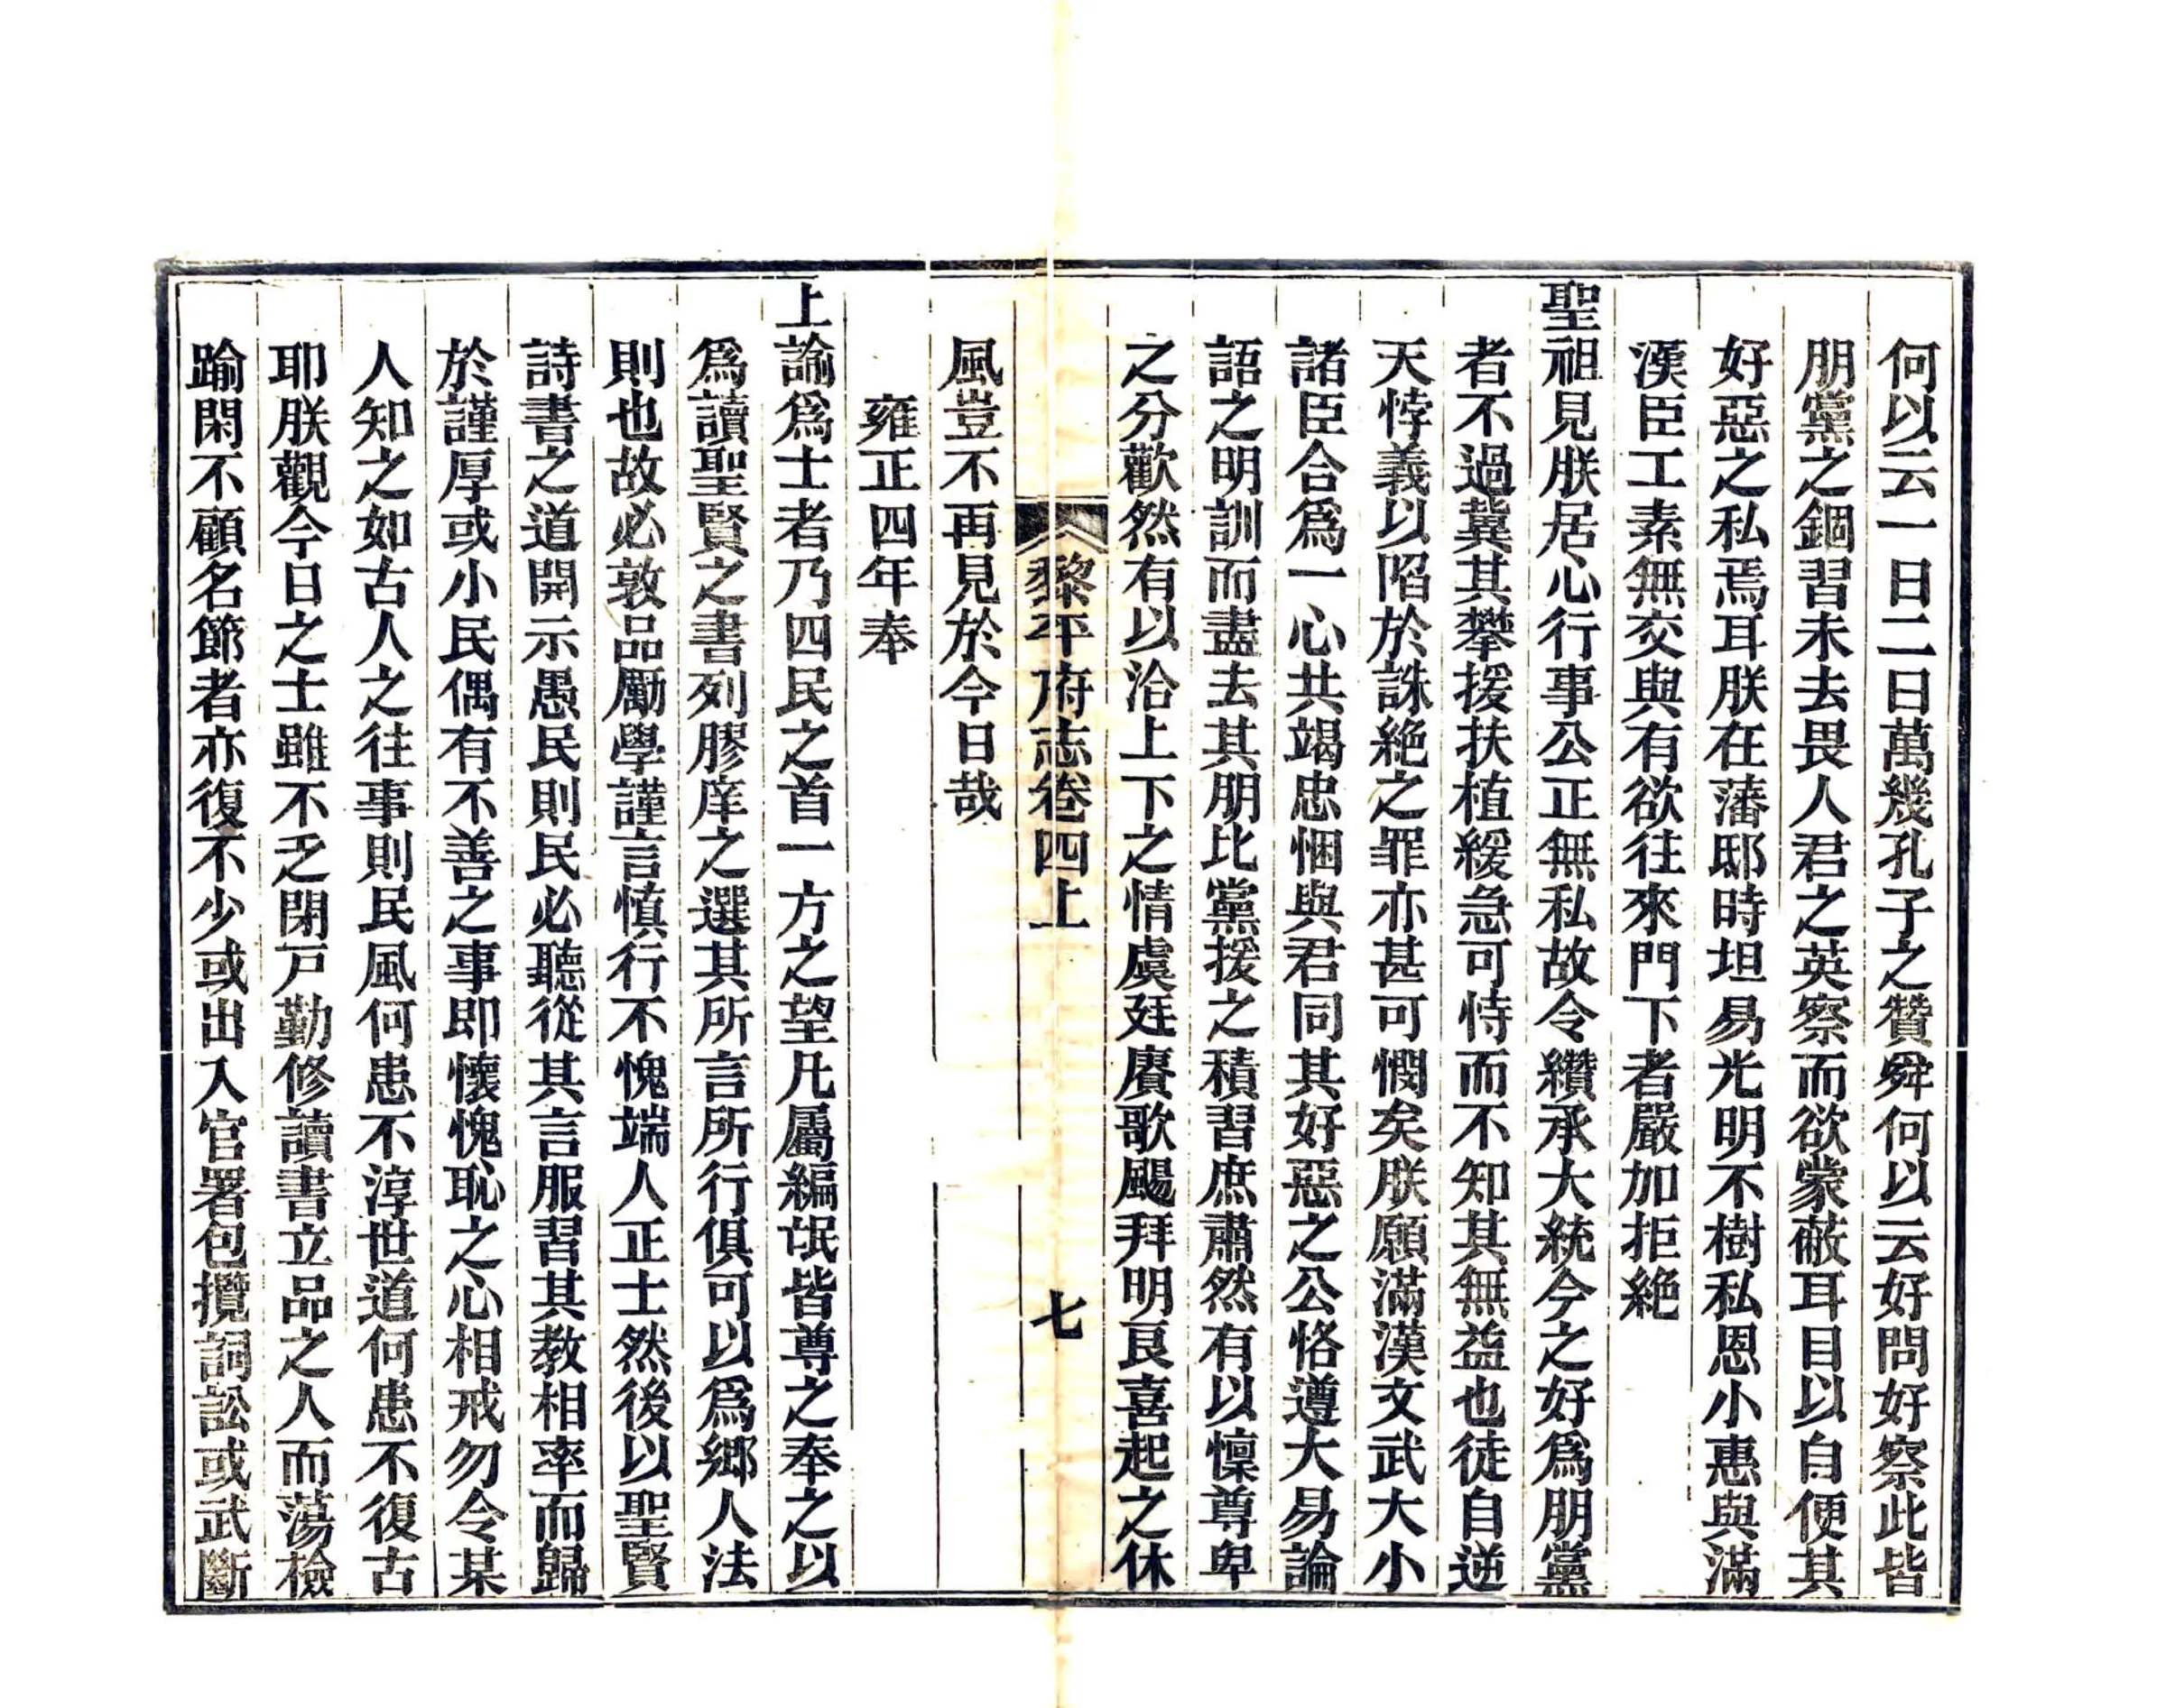 何以云一日二日萬幾孔子之贊舜何以云好問好察此皆
朋黨之錮習未去畏人君之英察而欲蒙蔽耳目以自便其
好惡之私焉耳朕在藩邸時坦易光明不樹私恩小惠與滿
漢臣工素無交與有欲往來門下者嚴加拒絶
聖祖見朕居心行事公正無私故令纘承大統今之好爲朋黨
者不過冀其攀援扶植緩急可恃而不知其無益也徒自逆
天悖義以陷於誅絶之罪亦甚可憫矣朕願滿漢文武大小
諸臣合爲一心共竭忠悃與君同其好惡之公恪遵大易論
語之明訓而盡去其朋比黨援之積習庶肅然有以懍尊卑
之分歡然有以洽上下之情虞廷賡歌颺拜明良喜起之休
黎平府志卷四上
七
風豈不再見於今日哉
雍正四年奉
上諭爲士者乃四民之首一方之望凡屬編氓皆尊之奉之以
爲讀聖賢之書列膠庠之選其所言所行俱可以爲鄉人法
則也故必敦品勵學謹言慎行不愧端人正士然後以聖賢
詩書之道開示愚民則民必聽從其言服習其教相率而歸
於謹厚或小民偶有不善之事即懷愧恥之心相戒勿令某
人知之如古人之往事則民風何患不淳世道何患不復古
耶朕觀今日之士雖不乏閉戸勤修讀書立品之人而蕩檢
踰閑不顧名節者亦復不少或出入官署包攬詞訟或武斷